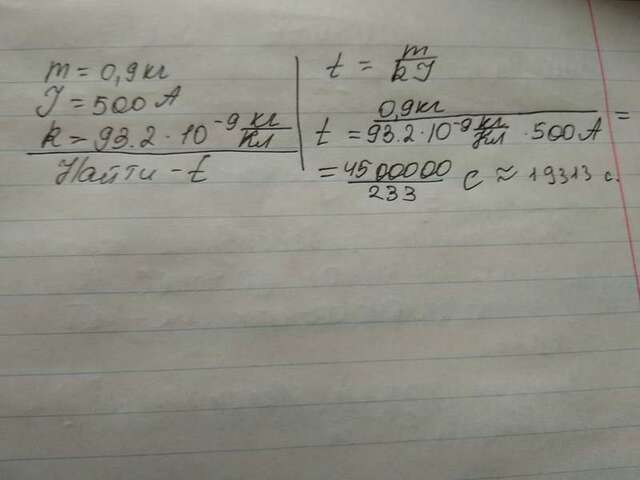 m = 0,9 кг
J = 500 A
k = 93.2 · 10⁻⁹ кг/Кл
Найти - t
t = m/kJ
t = 0,9 кг/93.2 · 10⁻⁹ кг/Кл · 500 A =
= 4500000/233 c ≈ 19313 c.